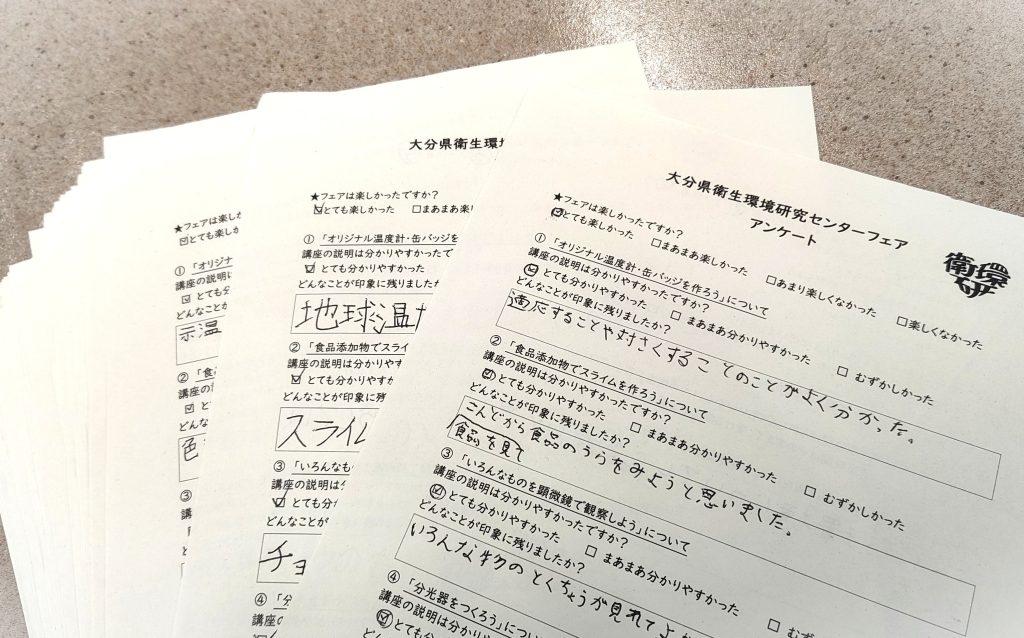 ★フェアは楽し
☑とても楽し
① 「オリジナ
講座の説明
☑ とても
どんなことか
示温
② 「食
講座の
☑ と
どんな
色
③
講
大分県衛生環境
★フェアは楽しかったですか？
☑とても楽しかった □まあまあ楽し
① 「オリジナル温度計・缶バッジを
講座の説明は分かりやすかったで
☑ とても分かりやすかった
どんなことが印象に残りましたか
地球温
② 「食品添加物でスライ
講座の説明は分かりやす
☑ とても分かりやすか
どんなことが印象に残
スライム
③ 「いろんなも
講座の説明は
☑ とても分
どんなことが
チョ
④ 「分
講座
大分県衛生環境研究センターフェア
アンケート
衛環研
★フェアは楽しかったですか？
☑とても楽しかった □まあまあ楽しかった □あまり楽しくなかった □楽しくなかった
① 「オリジナル温度計・缶バッジを作ろう」について
講座の説明は分かりやすかったですか？
☑ とても分かりやすかった □ まあまあ分かりやすかった □ むずかしかった
どんなことが印象に残りましたか？
適応することや対さくすることのことがよく分かった。
② 「食品添加物でスライムを作ろう」について
講座の説明は分かりやすかったですか？
☑とても分かりやすかった □ まあまあ分かりやすかった □ むずかしかった
どんなことが印象に残りましたか？
こんどから食品のうらをみようと思いました。
食品を見て
③ 「いろんなものを顕微鏡で観察しよう」について
講座の説明は分かりやすかったですか？
☑とても分かりやすかった □ まあまあ分かりやすかった □ むず
どんなことが印象に残りましたか？
いろんな物のとくちょうが見れてよか
④ 「分光器をつくろう」について
講座の説明は分かりやすかったですか？
☑とても分かりやすかった